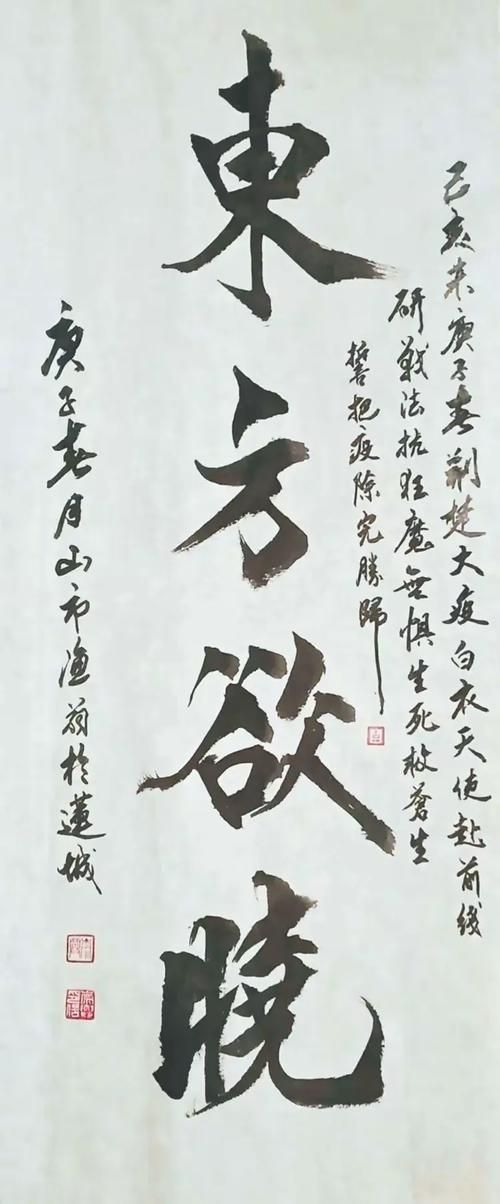 己亥末庚子春荆楚大疫白衣天使赴前线
研战法抗狂魔無惧生死救蒼生
誓把疫除完勝歸
東方欲曉
庚子春月山市渔翁於蓮城